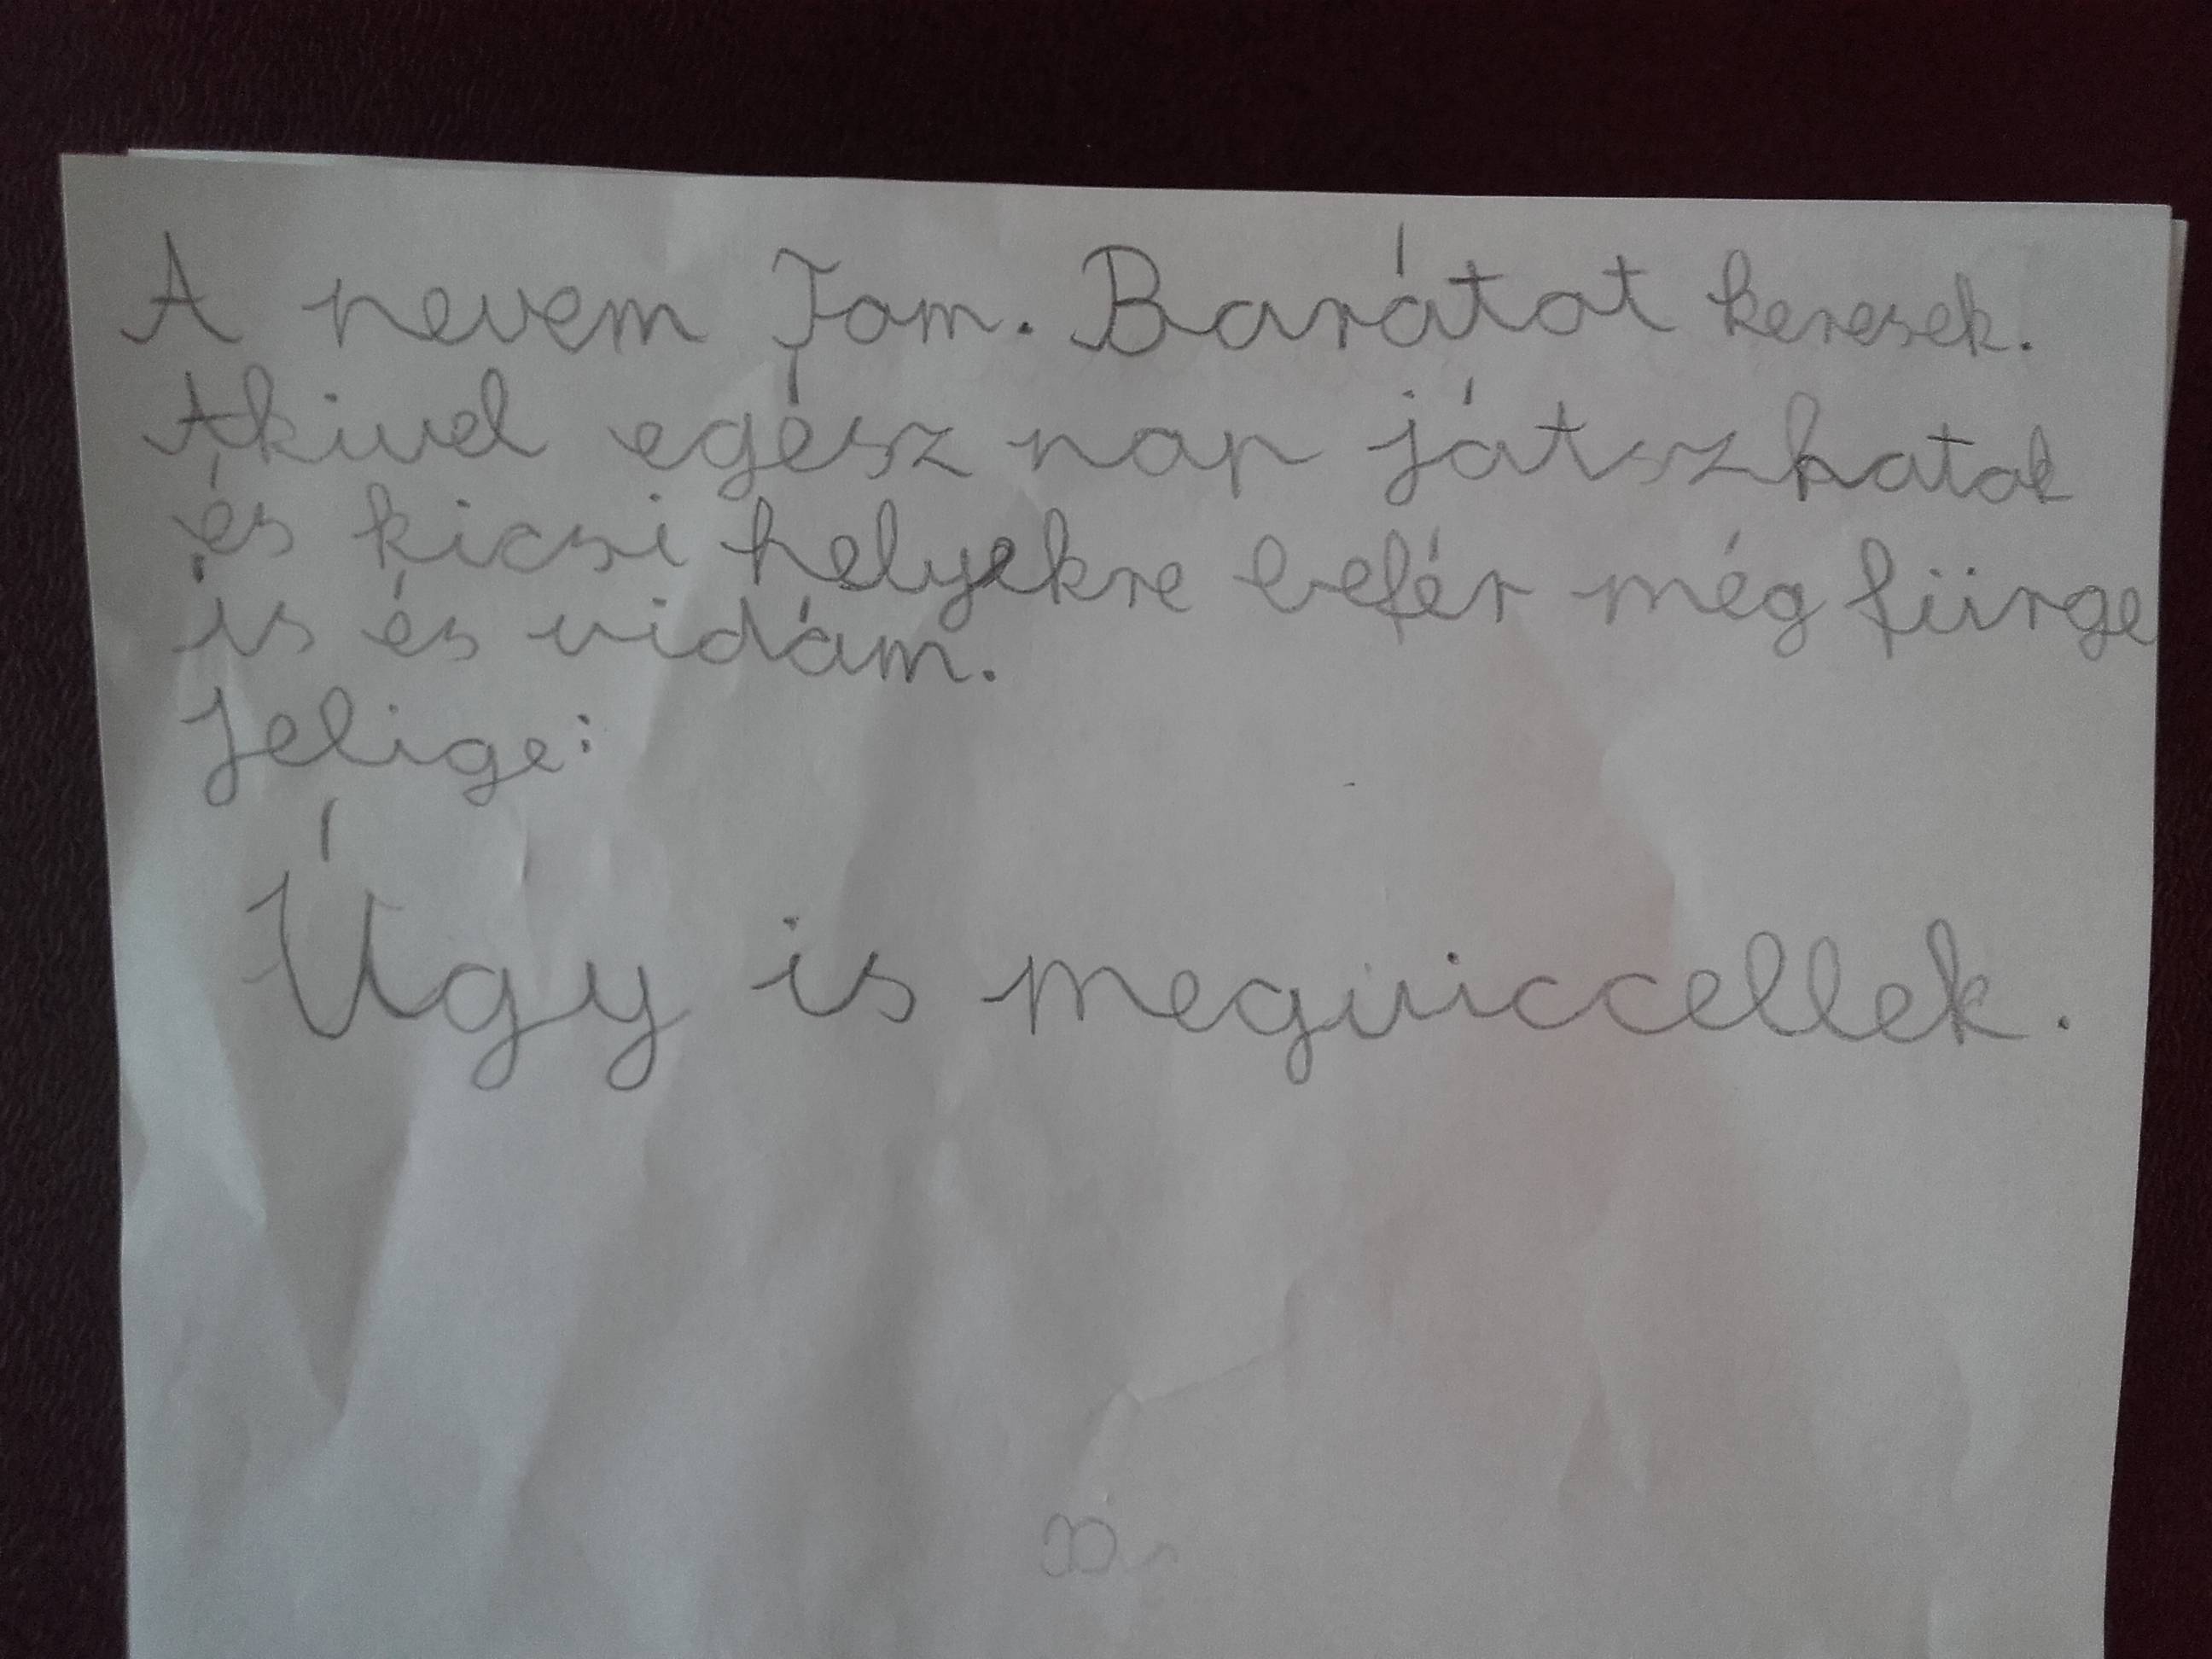 A nevem Tom. Barátot keresek.
Akivel egész nap játszhatok
és kicsi helyekre befér még fürge
is és vidám.
Jelige:
Úgy is megviccellek.